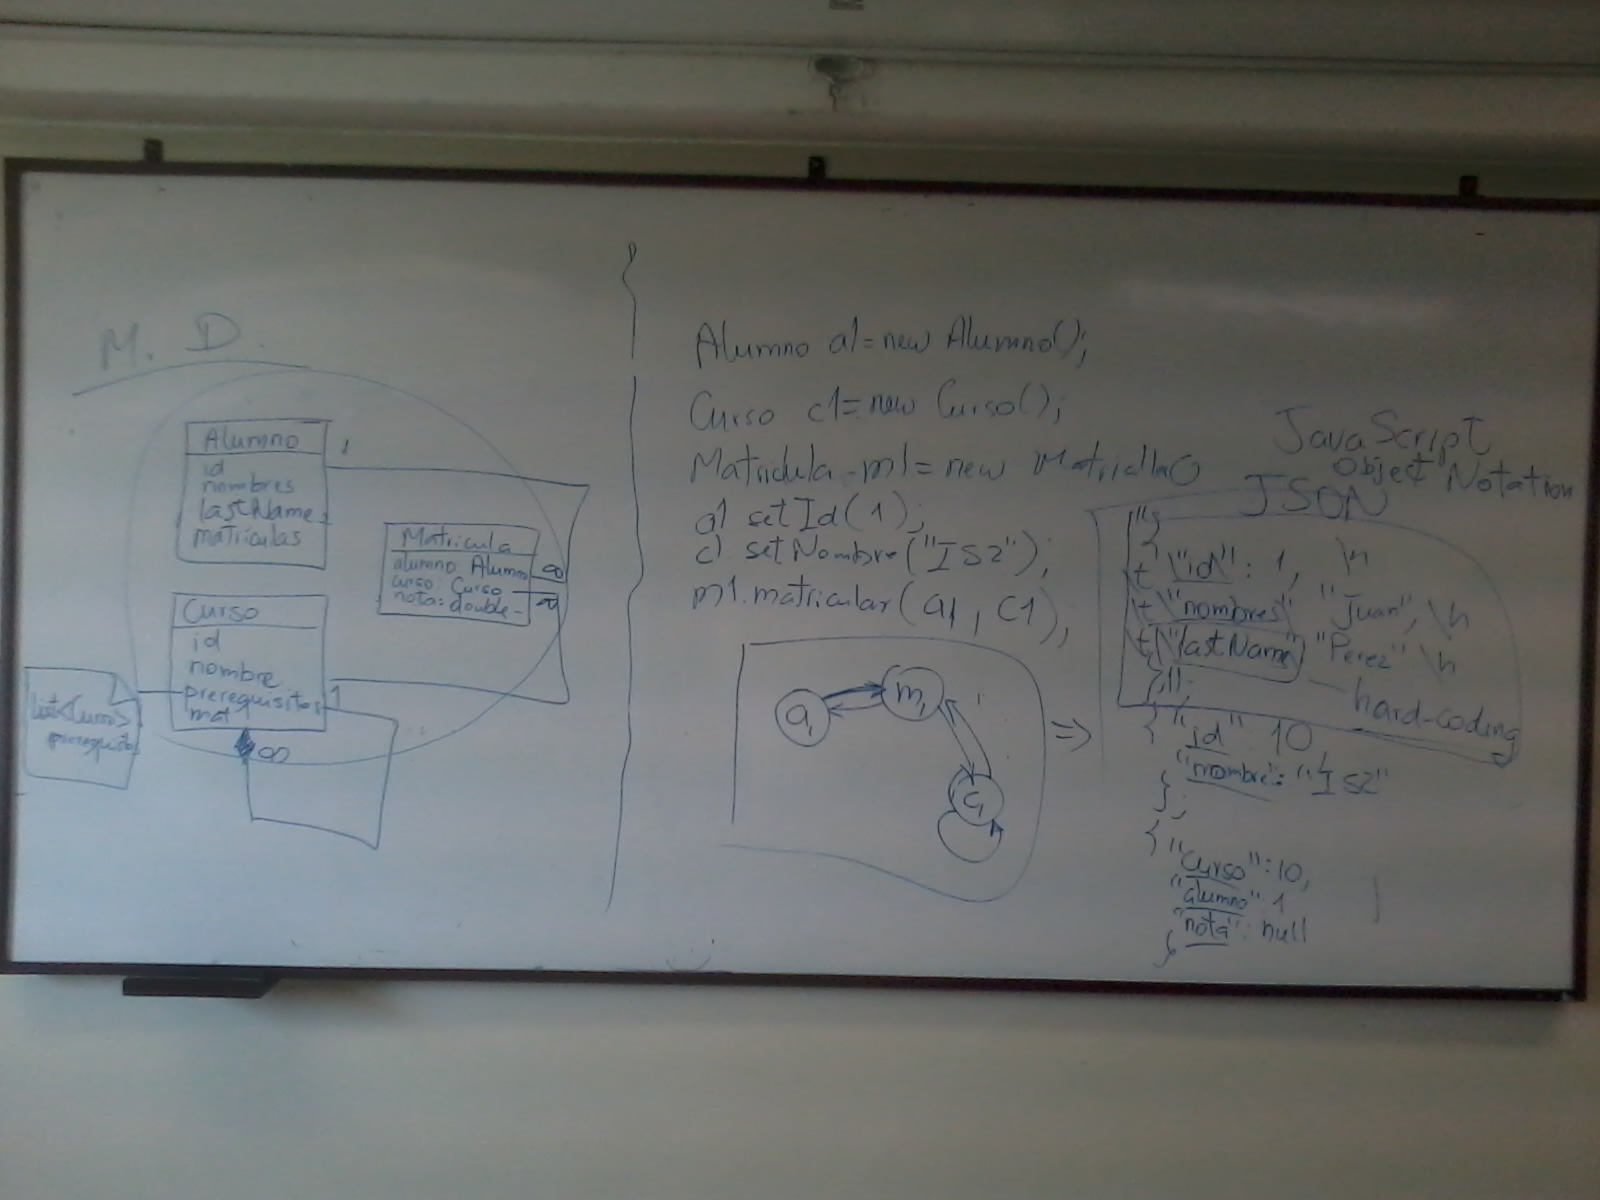 M. D.
Alumno
id
nombres
lastName
matriculas
1
Matricula
alumno: Alumno
curso: Curso
nota: double
∞
∞
Curso
id
nombre
prerequisitos
mat
1
∞
list<Curso>
Alumno a1=new Alumno();
Curso c1=new Curso();
Matricula m1= new Matricula()
a1 setId(1);
c1. setNombre("IS2");
m1.matricular(a1, c1);
a1
m1
c1
⇒
JavaScript
Object Notation
JSON
"{
\t \"id\" : 1, \n
\t \"nombres\" "Juan", \n
\t \"lastName\" "Perez" \n
}";
hard-coding
{ "id" 10,
"nombre": "IS2"
};
{
"Curso": 10,
"alumno" 1
"nota": null
}